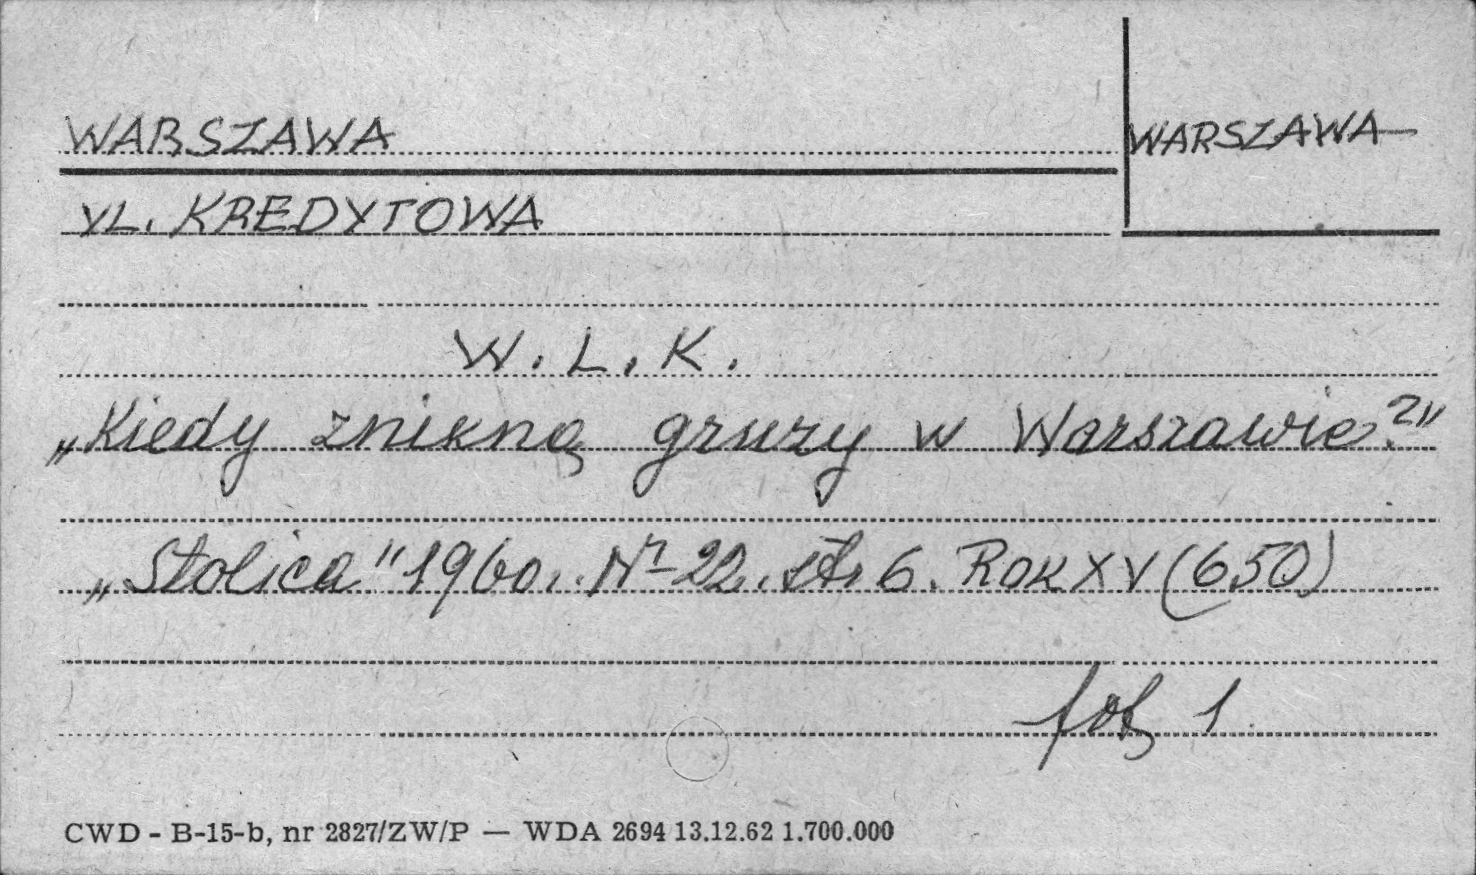 WARSZAWA
WARSZAWA
UL. KREDYTOWA
W. L. K.
„Kiedy znikną gruzy w Warszawie?"
„Stolica" 1960r. Nr 22. str. 6. Rok XV (650)
fot. 1.
CWD - B-15-b, nr 2827/ZW/P — WDA 2694 13.12.62 1.700.000